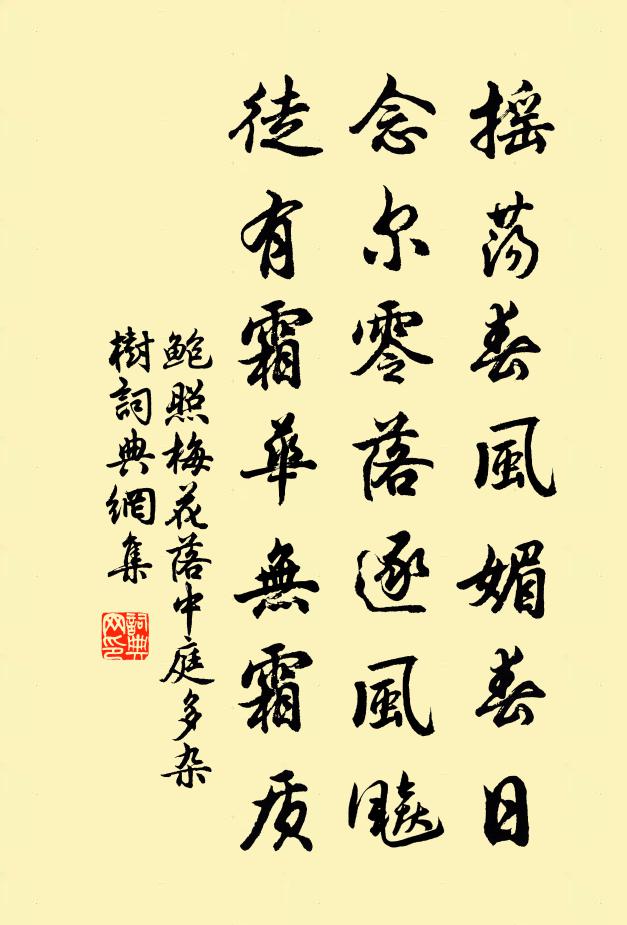 摇荡春風媚春日
念尔零落逐風飈
徒有霜華無霜质
鲍照梅花落中庭多杂
樹詞典網集
詞典网印